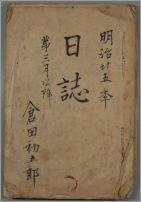 明治廿五年
日誌
第三月以降
倉田初五郎